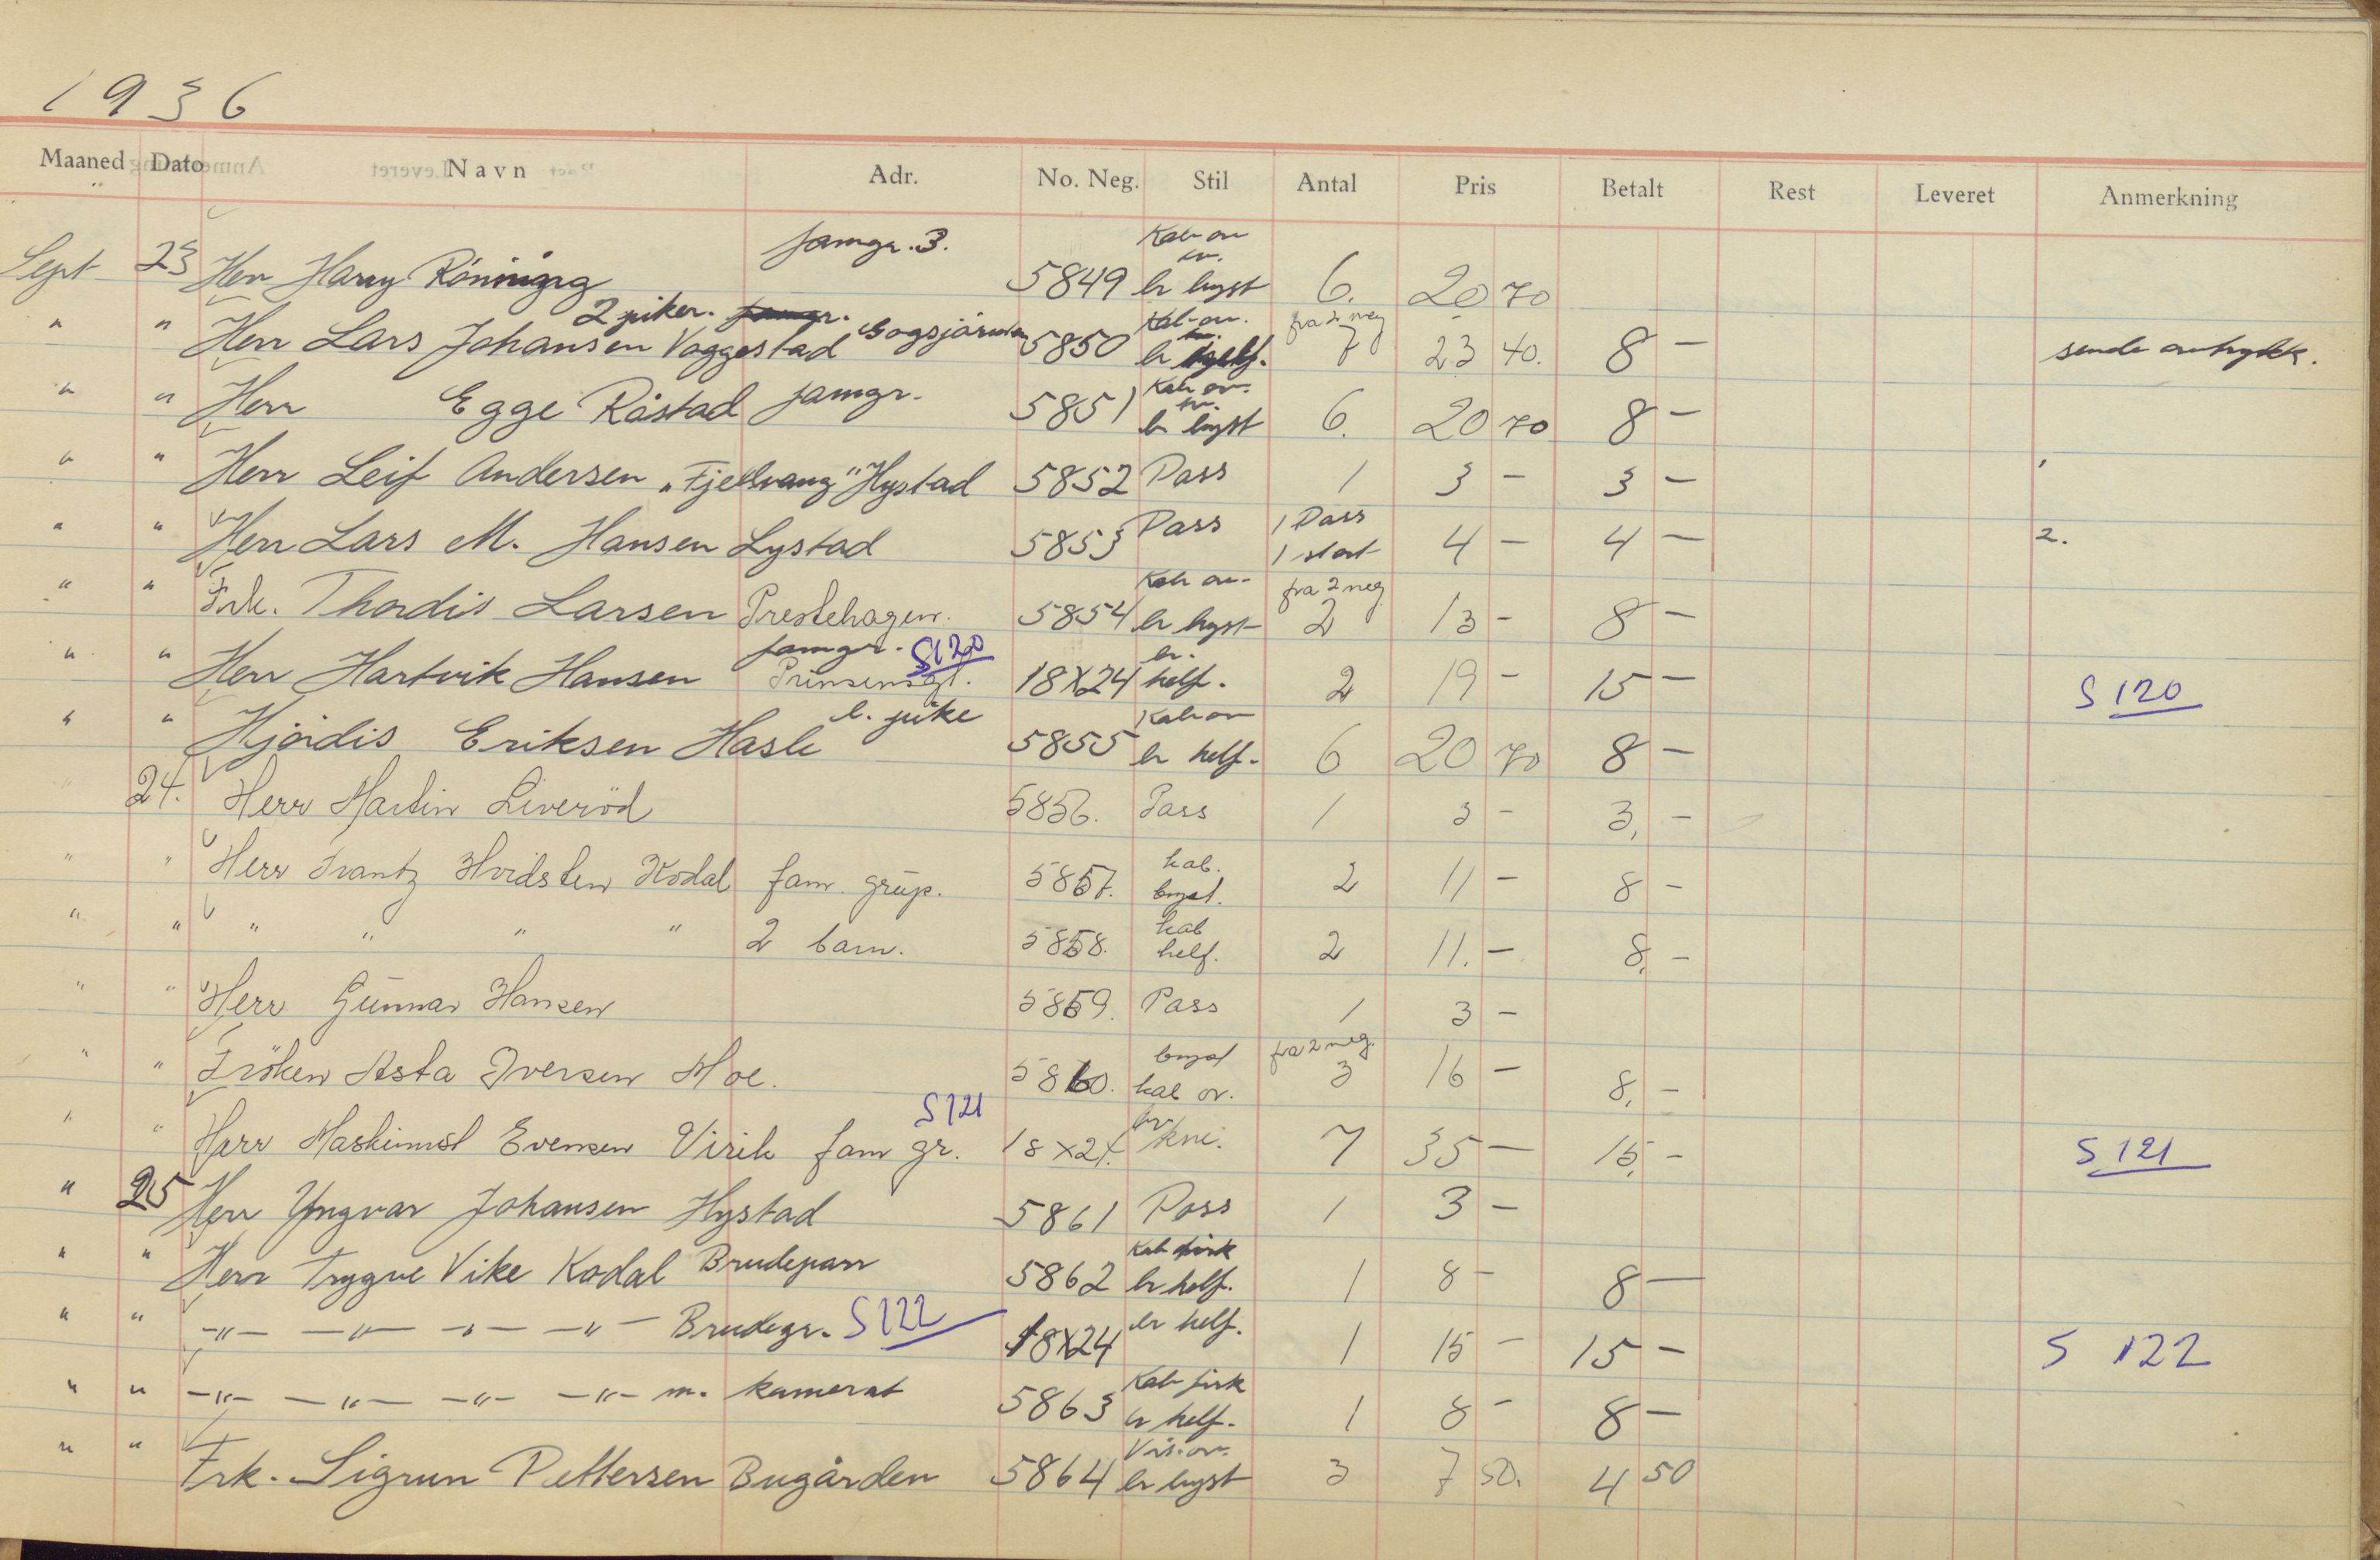 1936
Maaned Dato Navn Adr. No. Neg. Stil Antal Pris Betalt Rest Leveret Anmerkning
famgr. 3. Kab ov
Sept 23 Herr Harry Rönning 5849 br byst 6. 20 70
2 piker. Gogsjårunden Kab-ov. fra 2 neg
" " Herr Lars Johansen Vaggestad 5850 br helf. 7 23 40. 8 – sende avtrykk.
Kab ov.
" " Herr Egge Råstad famgr. 5851 br byst 6. 20 70 8 –
" " Herr Leif Andersen „Fjellvang" Hystad 5852 Pass 1 3 – 3 –
" " Herr Lars M. Hansen Lystad 5853 Pass 1 Pass 4 – 4 – 2.
1 stort
Kab ov- fra 2 neg
" " Frk. Thordis Larsen Prestehagen. 5854 br byst 2 13 – 8 –
famgr. S120 br.
" " Herr Hartvik Hansen Prinsensgt. 18X24 helf. 2 19 – 15 – S 120
l. pike Kab ov
" " Hjördis Eriksen Hasle 5855 br helf. 6 20 70 8 –
" 24. Herr Martin Liveröd 5856. Pass 1 3 – 3, –
kab.
" " Herr Frantz Hvidsten Kodal fam. grup. 5857. byst. 2 11 – 8 –
kab
" " " " " " 2 barn. 5858. helf. 2 11. – 8, –
" " Herr Gunnar Hansen 5859. Pass 1 3 –
byst fra 2 neg.
" " Fröken Asta Iversen Moe. 5860. kab ov. 3 16 – 8, –
S121 br
" " Herr Maskinmst Evensen Virik fam gr. 18x24. kne. 7 35 – 15, – S 121
" 25 Herr Yngvar Johansen Hystad 5861 Pass 1 3 –
Kab firk
" " Herr Trygve Vike Kodal Brudepar 5862 br helf. 1 8 – 8 –
" " –"– –"– –"– –"– Brudegr. S122 18X24 br helf. 1 15 – 15 – S 122
Kab firk
" " –"– –"– –"– –"– m. kamerat 5863 br helf. 1 8 – 8 –
Vis. ov.
" " Frk. Sigrun Pettersen Bugården 5864 br byst 3 7 50. 4 50